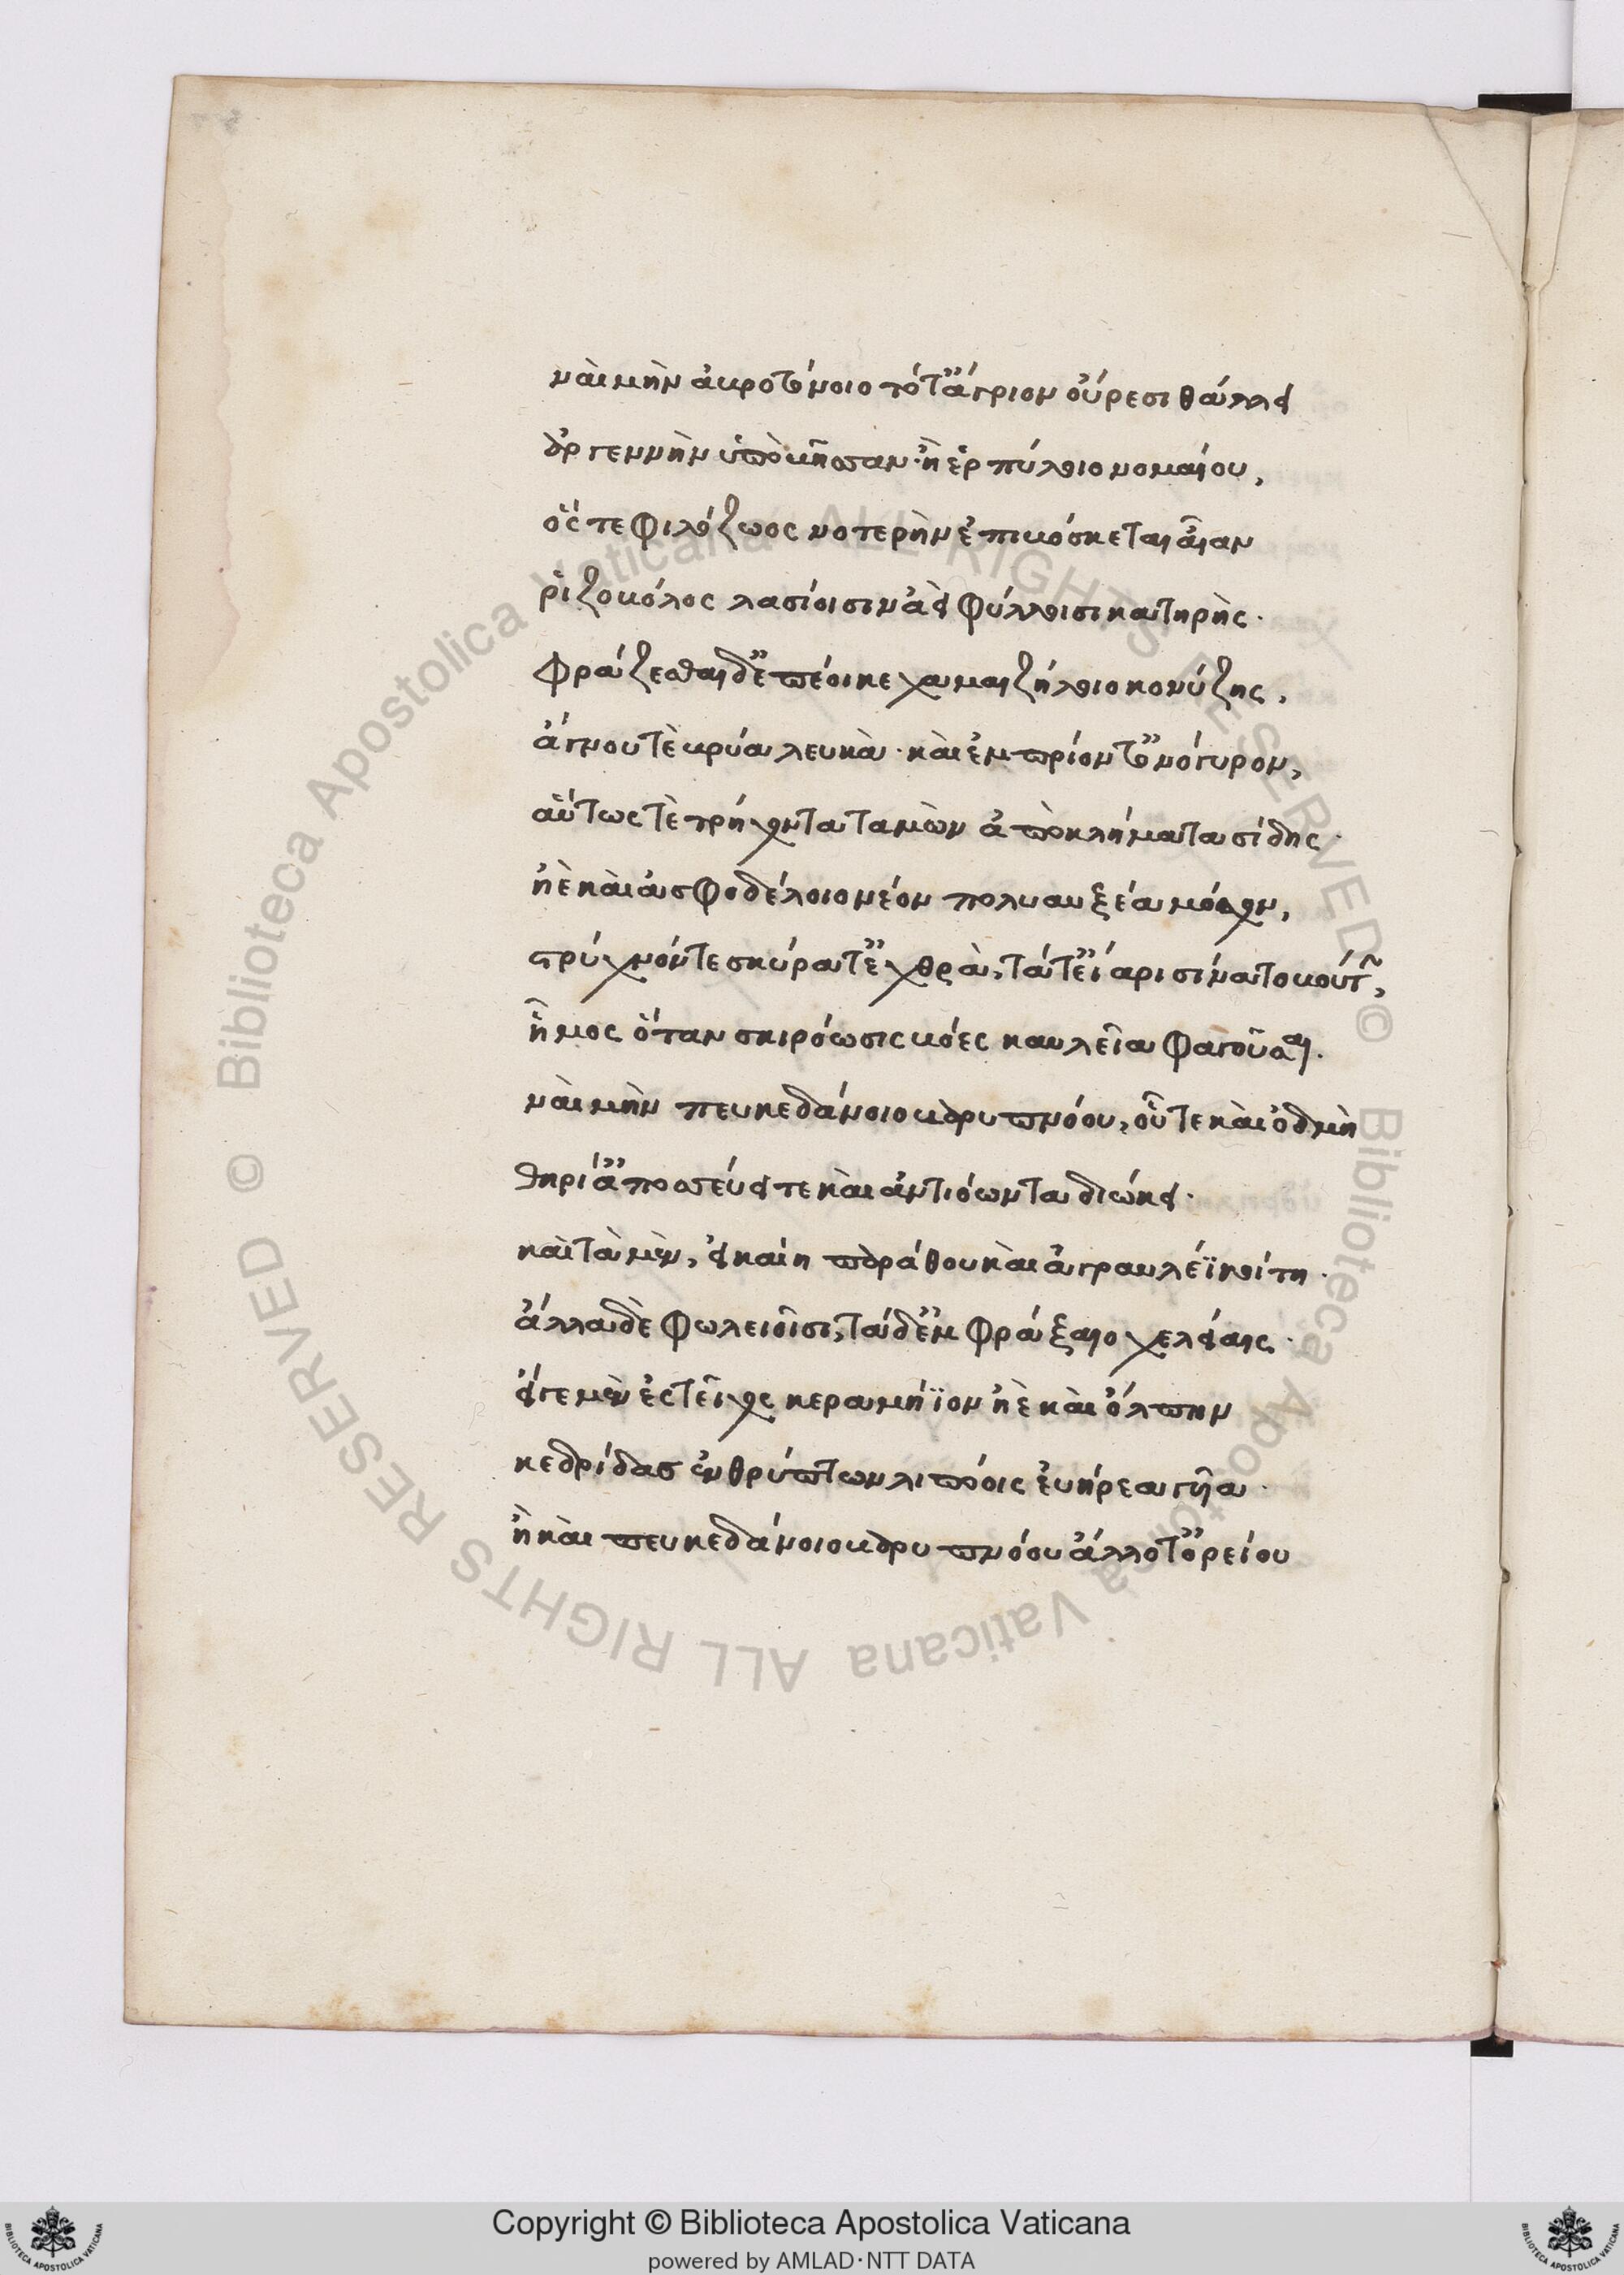 ναὶ μὴν ἀβροτόνοιο τό τ' ἄγριον οὔρεσι θάλλει
ἀργεννὴν ὑπὸ βῆσσαν· ἢ ἑρπύλλοιο νομαίου,
ὅς τε φιλόζωος νοτερὴν ἐπιβόσκεται αἶαν
ῥιζοβόλος λασίοισιν ἀεὶ φύλλοισι κατηρής.
φράζεσθαι δ' ἐπέοικε χαμαιζήλοιο κονύζης,
ἄγνου τὲ βρύα λευκὰ· καὶ ἐμπρίοντ' ὀνόγυρον,
αὕτως τὲ τρήχοντα ταμὼν ἀπὸ κλήματα σίδης·
ἠὲ καὶ ἀσφοδέλοιο νέον πολυαυξέα μόσχον,
στρύχνόν τε σκύρα τ' ἐχθρὰ, τά τ' εἴαρι σίνατο βούτην,
ἦμος ὅταν σκιρόωσι βόες καυλεῖα φαγοῦσαι.
ναὶ μὴν πευκεδάνοιο βαρυπνόου, οὗ τε καὶ ὀδμὴ
θηρί' ἀποσσεύει τε καὶ ἀντιόωντα διώκει.
καὶ τὰ μὲν, εἰκαίη παράθου καὶ ἀγραυλέϊ κοίτη·
ἄλλα δὲ φωλειοῖσι, τὰ δ' ἐμφράξαιο χελείαις·
εἴ γε μὲν ἐς τεῖχος κεραμήϊον ἠὲ καὶ ὄλπην
κεδρίδας ἐνθρύπτων λιπόοις ἐυήρεα γῆα·
ἢ καὶ πευκεδάνοιο βαρυπνόου ἄλλοτ' ὀρείου
Copyright © Biblioteca Apostolica Vaticana
powered by AMLAD·NTT DATA